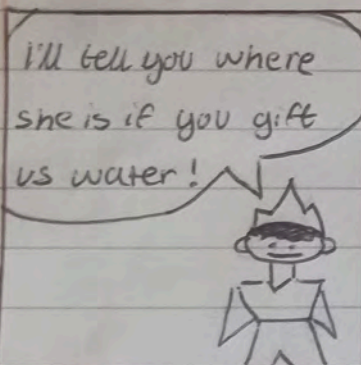 i'll tell you where
she is if you gift
us water!